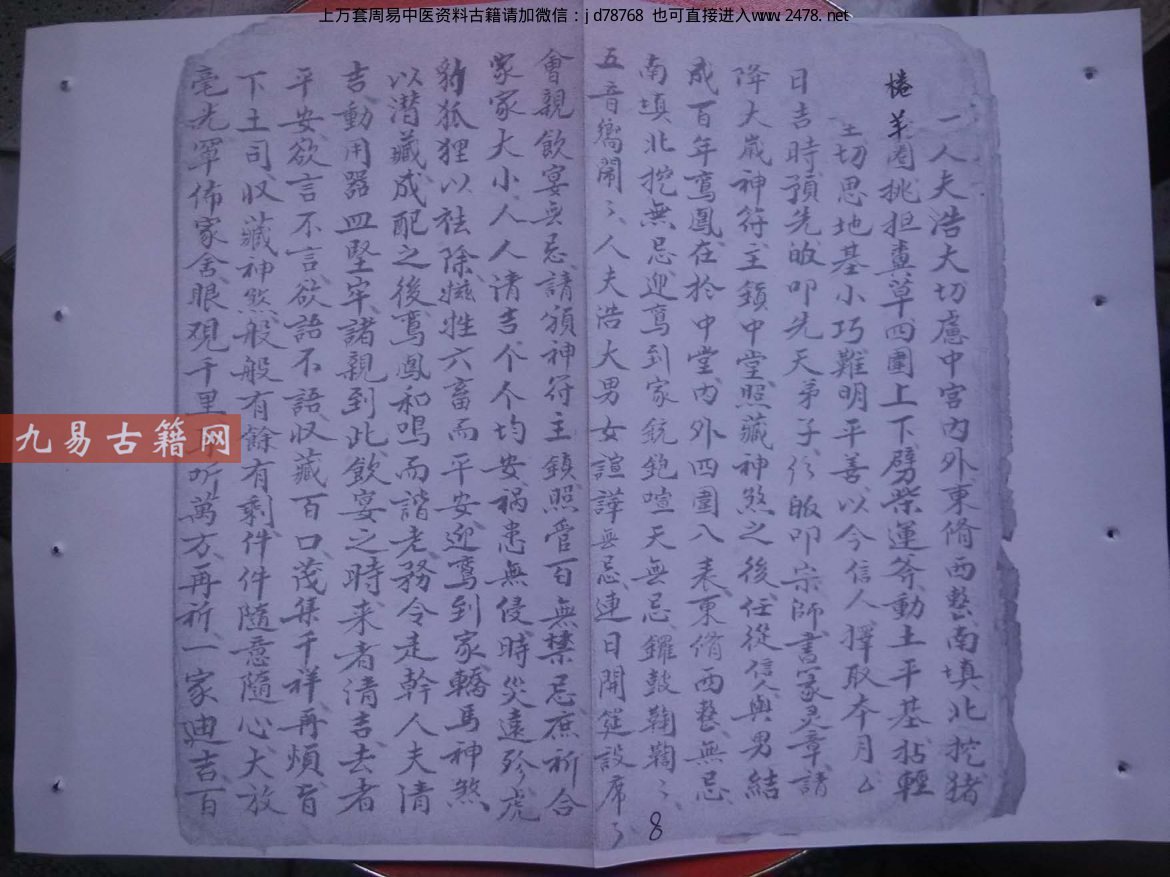 上万套周易中医资料古籍请加微信：jd78768 也可直接进入www.2478.net
一人夫浩大切慮中宮内外東脩西整南填北挖猪
棬羊圈挑担糞草四圍上下劈柴運斧動土平基拈輕
切思地基小巧難明平善以今信人擇取本月厶
日吉時預先皈叩先天弟子皈叩宗師書家灵章請
降大嵗神符主鎮中堂照藏神煞之後任從信人與男結
成百年鸾鳳在於中堂内外四圍八表東脩西整無忌
南填北挖無忌迎鸾到家銃鉋喧天無忌鑼鼓鞠鞠
五音鄉鬧人夫浩大男女諠譁無忌連日開筵設席
會親飲宴無忌請頒神符主鎮照管百無禁忌庶祈合
家家大小人人清吉个个均安禍患無侵時災遠殄虎
豹狐狸以祛除㸵牲六畜而平安迎鸾到家轎馬神煞
以潜藏成配之後鸾鳳和鳴而諧老務令走幹人夫清
吉動用器皿堅牢諸親到此飲宴之時来者清吉去者
平安欲言不言欲語不語收藏百口茂集千祥再煩旨
下土司收藏神煞般般有餘有剩件件隨意隨心大放
毫光罩佈家舍眼观千里耳听萬方再祈一家迪吉百
8
九易古籍网